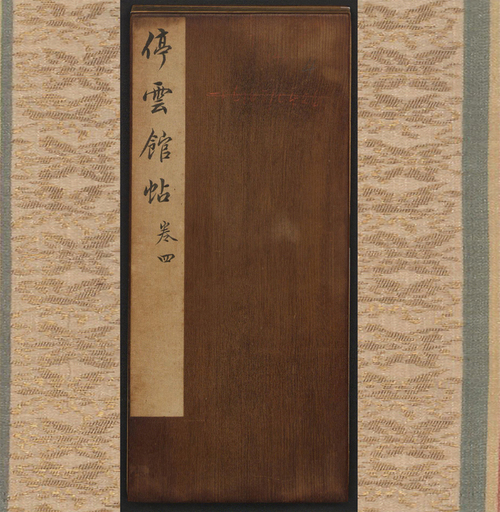 停雲館帖 卷四